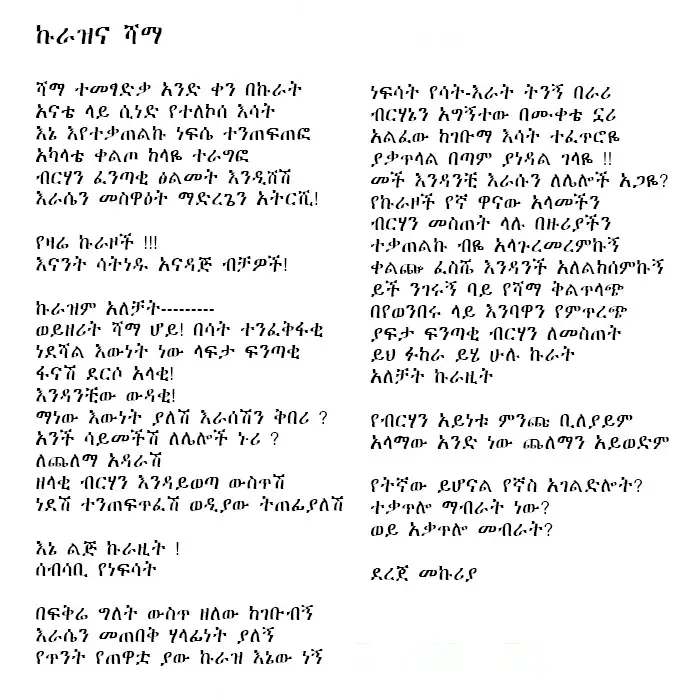 ኩራዝና ሻማ
ሻማ ተመፃድቃ አንድ ቀን በኩራት
አናቴ ላይ ሲነድ የተለኮሰ እሳት
እኔ እየተቃጠልኩ ነፍሴ ተንጠፍጠፎ
አካላቴ ቀልጦ ከላዬ ተራግፎ
ብርሃን ፈንጣቂ ፅልመት እንዲሸሽ
እራሴን መስዋዕት ማድረጌን አትርሺ!
የዛሬ ኩራዞች !!!
እናንት ሳትነዱ አናዳጅ ብቻዎች!
ኩራዝም አለቻት---------
ወይዘሪት ሻማ ሆይ! በሳት ተንፈቅፋቂ
ነደሻል እውነት ነው ላፍታ ፍንጣቂ
ፋናሽ ደርሶ አላቂ!
እንዳንቺው ውዳቂ!
ማነው እውነት ያለሽ እራሰሽን ቅበሪ ?
አንች ሳይመችሽ ለሌሎች ኑሪ ?
ለጨለማ አዳራሽ
ዘላቂ ብርሃን እንዳይወጣ ውስጥሽ
ነደሽ ተንጠፍጥፈሽ ወዲያው ትጠፊያለሽ
እኔ ልጅ ኩራዚት !
ሰብሳቢ የነፍሳት
በፍቅሬ ግለት ውስጥ ዘለው ከገቡብኝ
እራሴን መጠበቅ ሃላፊነት ያለኝ
የጥንት የጠዋቷ ያው ኩራዝ እኔው ነኝ
ነፍሳት የሳት-እራት ትንኝ በራሪ
ብርሃኔን አግኝተው በሙቀቴ ኗሪ
አልፈው ከገቡማ እሳት ተፈጥሮዬ
ያቃጥላል በጣም ያነዳል ገላዬ !!
መች እንዳንቺ እራሱን ለሌሎች አጋዬ?
የኩራዞች የኛ ዋናው አላመችን
ብርሃን መስጠት ላሉ በዙሪያችን
ተቃጠልኩ ብዬ አላጉረመረምኩኝ
ቀልጬ ፈስሼ እንዳንች አለልከሰምኩኝ
ይች ንገሩኝ ባይ የሻማ ቅልጥላጭ
በየወንበሩ ላይ እንባዋን የምጥረጭ
ያፍታ ፍንጣቂ ብርሃን ለመስጠት
ይህ ፉከራ ይሄ ሁሉ ኩራት
አለቻት ኩራዚት
የብርሃን አይነቱ ምንጩ ቢለያይም
አላማው አንድ ነው ጨለማን አይወድም
የትኛው ይሆናል የኛስ አገልድሎት?
ተቃጥሎ ማብራት ነው?
ወይ አቃጥሎ መብራት?
ደረጀ መኩሪያ